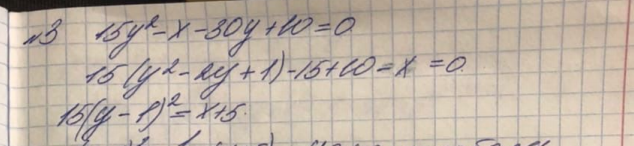 №3 15y²-x-30y+10=0
15(y²-2y+1)-15+10=x =0
15(y-1)²=x+5.